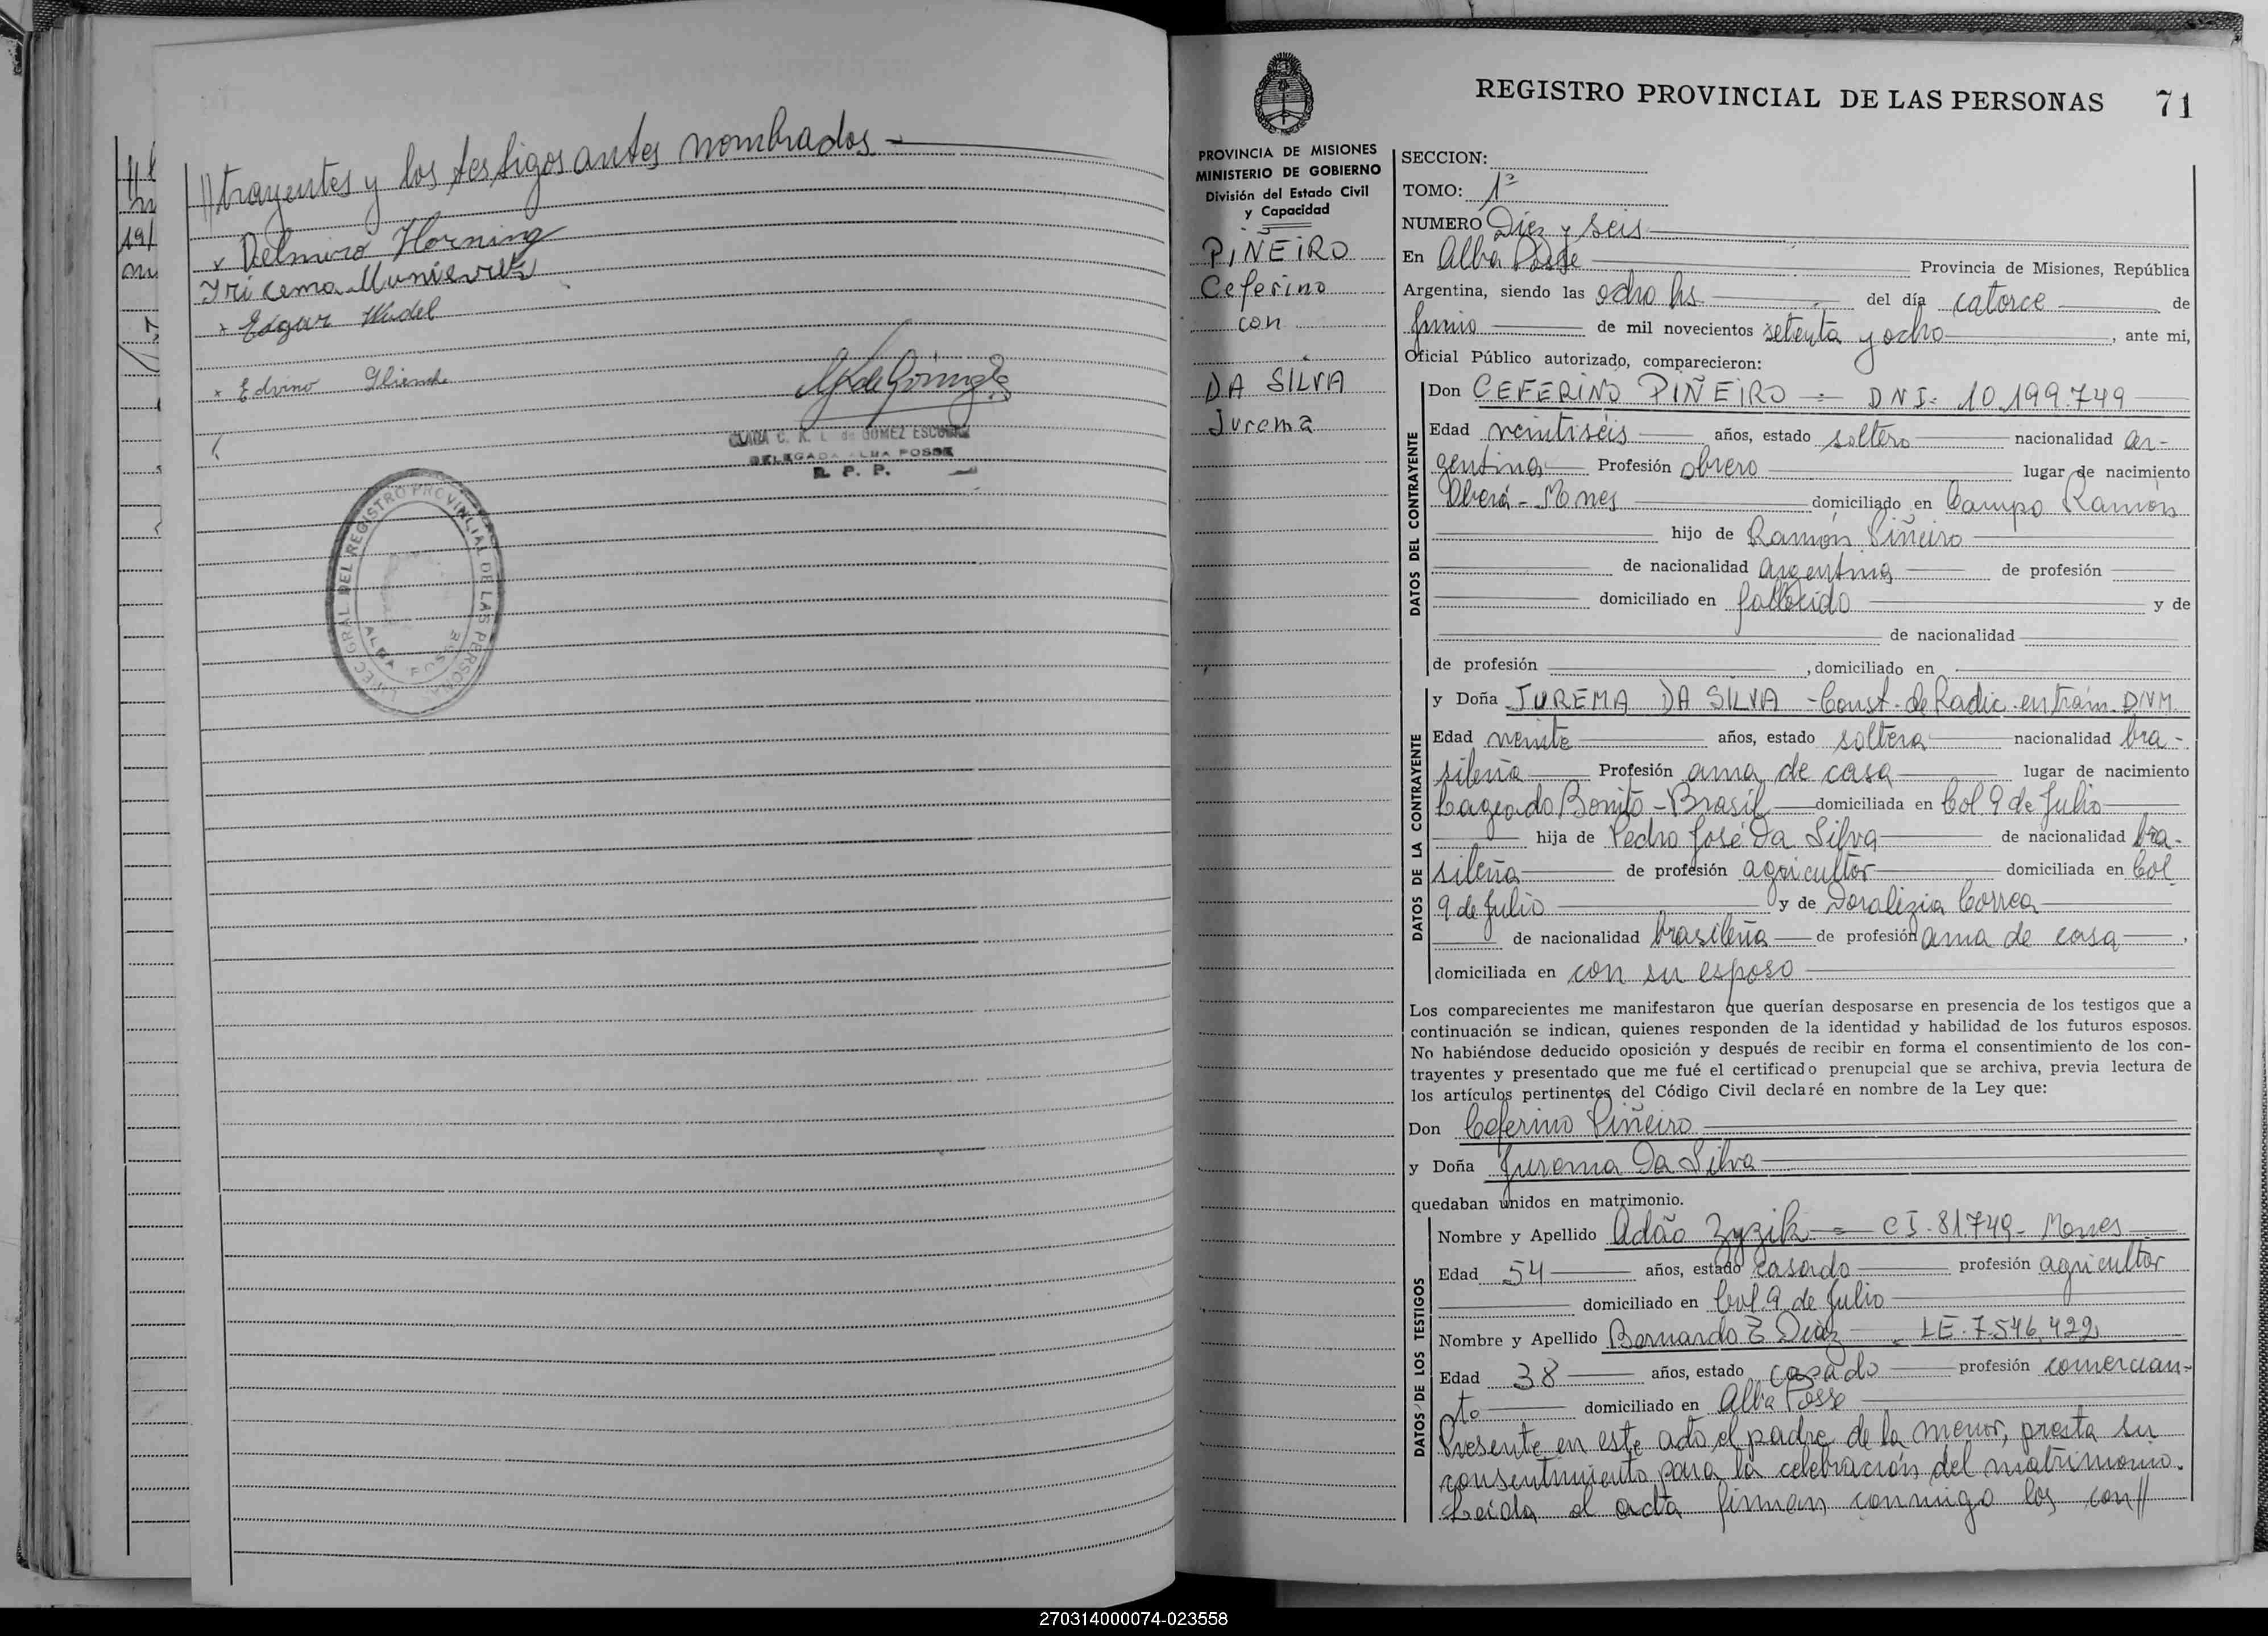 //trayentes y los testigos antes nombrados-
x Delmiro Horning
Iri cema
x Edgar
x Edvino
CLARA C. K. L de GOMEZ ESCOBAR
DELEGADA ALBA POSSE
R. P. P.
DIREC GRAL DEL REGISTRO PROVINCIAL DE LAS PERSONAS
ALBA POSSE
REGISTRO PROVINCIAL DE LAS PERSONAS 71
PROVINCIA DE MISIONES
MINISTERIO DE GOBIERNO
División del Estado Civil
y Capacidad
PIÑEIRO
Ceferino
con
DA SILVA
Jurema
SECCION:
TOMO: 1ª
NUMERO Diez y seis
En Alba Posse Provincia de Misiones, República
Argentina, siendo las ocho hs del día catorce de
Junio de mil novecientos setenta y ocho, ante mi,
Oficial Público autorizado, comparecieron:
DATOS DEL CONTRAYENTE
Don CEFERINO PIÑEIRO = DNI- 10.199.749
Edad veintiseis años, estado soltero nacionalidad ar-
gentina Profesión obrero lugar de nacimiento
Oberá - Mnes domiciliado en Campo Ramón
hijo de Ramón Piñeiro
de nacionalidad argentina de profesión
domiciliado en fallecido y de
de nacionalidad
de profesión , domiciliado en
DATOS DE LA CONTRAYENTE
y Doña JUREMA DA SILVA - Const. de Radic. en trám. DNM
Edad veinte años, estado soltera nacionalidad bra-
sileña Profesión ama de casa lugar de nacimiento
Lageado Bonito - Brasil domiciliada en Col. 9 de Julio
hija de Pedro José Da Silva de nacionalidad bra-
sileña de profesión agricultor domiciliada en Col
9 de Julio y de Doralizia Correa
de nacionalidad brasileña de profesión ama de casa,
domiciliada en con su esposo
Los comparecientes me manifestaron que querían desposarse en presencia de los testigos que a
continuación se indican, quienes responden de la identidad y habilidad de los futuros esposos.
No habiéndose deducido oposición y después de recibir en forma el consentimiento de los con-
trayentes y presentado que me fué el certificado prenupcial que se archiva, previa lectura de
los artículos pertinentes del Código Civil declaré en nombre de la Ley que:
Don Ceferino Piñeiro
y Doña Jurema Da Silva
quedaban unidos en matrimonio.
DATOS DE LOS TESTIGOS
Nombre y Apellido Adão Zyzik = CI. 81.749- Mones
Edad 54 años, estado casado profesión agricultor
domiciliado en Col. 9 de Julio
Nombre y Apellido Bernardo E Diaz - LE. 7.546.422
Edad 38 años, estado casado profesión comercian-
te domiciliado en Alba Posse
Presente en este acto el padre de la menor, presta su
consentimiento para la celebración del matrimonio.
Leída el acta firman conmigo los con//
270314000074-023558